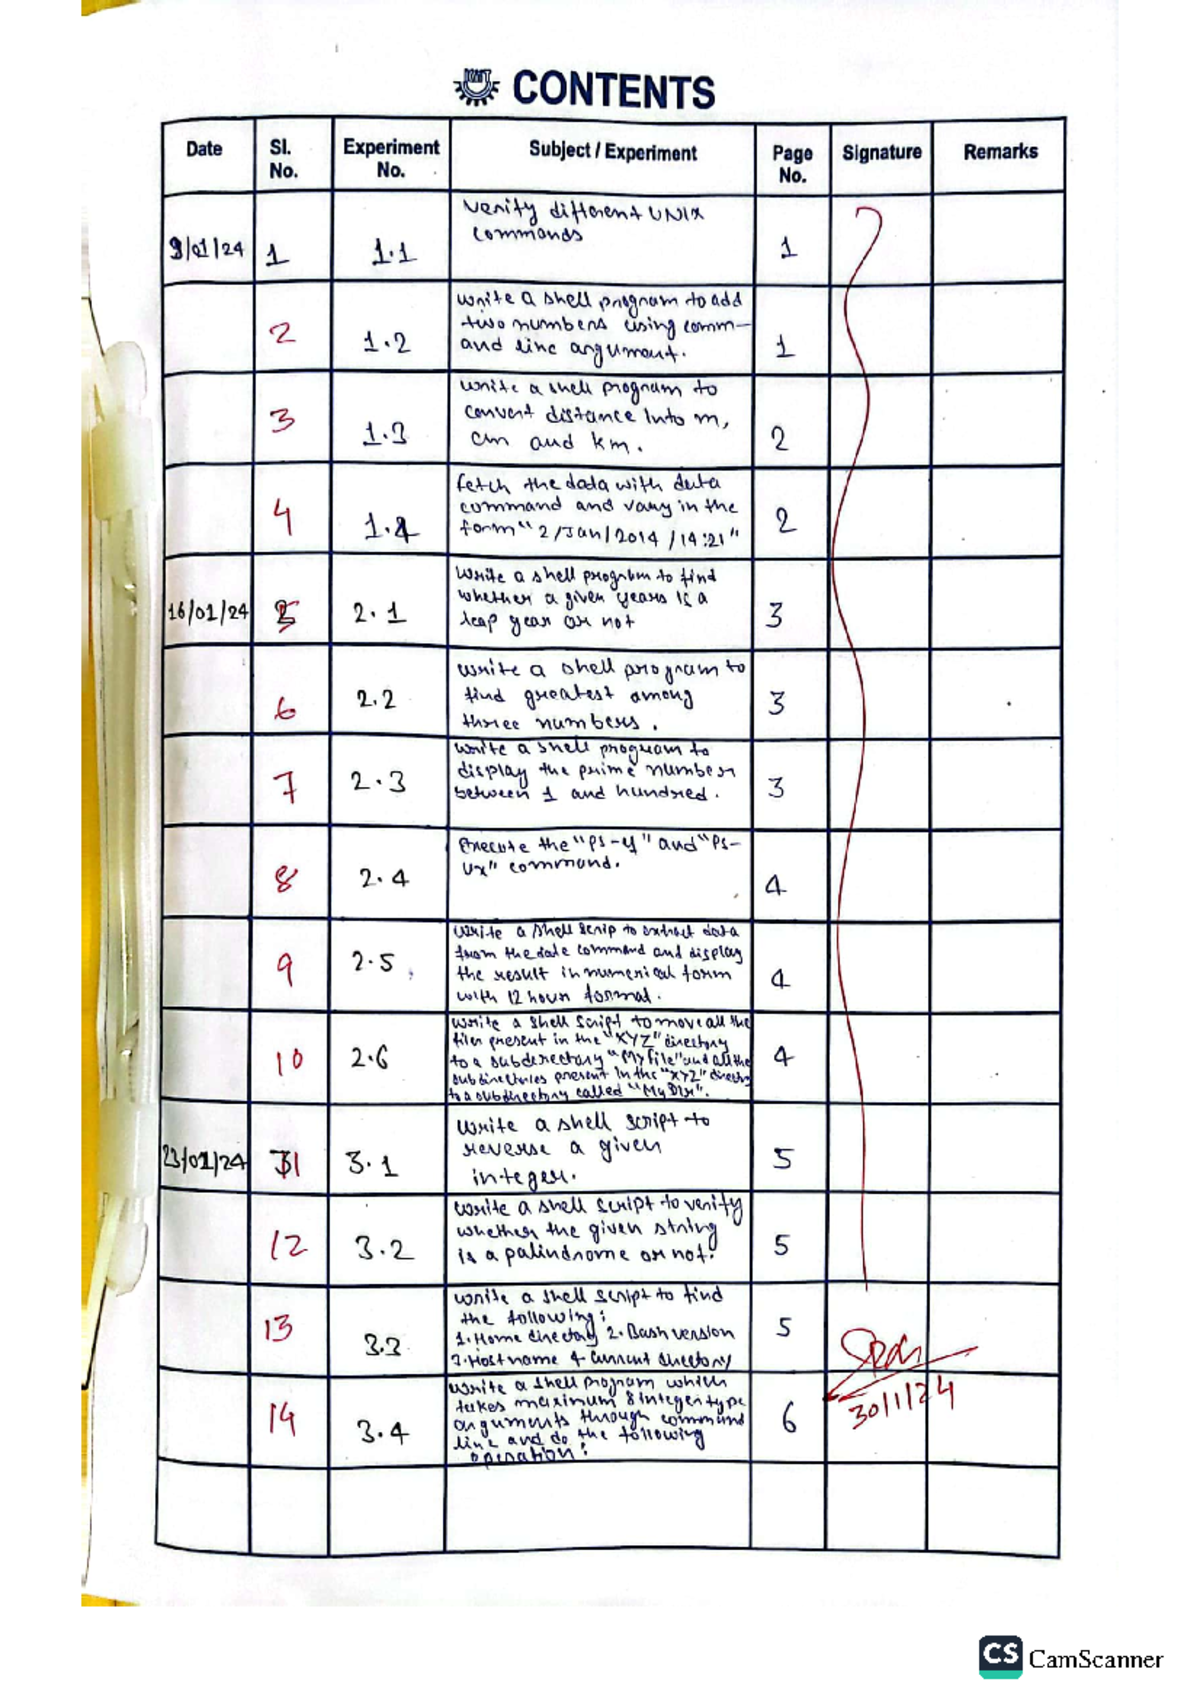 KIIT CONTENTS
Date Sl. No. Experiment No. Subject / Experiment Page No. Signature Remarks
9/01/24 1 1.1 Verify different UNIX
commands 1
2 1.2 Write a shell program to add
two numbers using comm-
and line argument. 1
3 1.3 Write a shell program to
convert distance into m,
cm and km. 2
4 1.4 fetch the data with data
command and vary in the
form "2/Jan/2014/14:21" 2
16/01/24 5 2.1 Write a shell program to find
whether a given years is a
leap year or not 3
6 2.2 Write a shell program to
find greatest among
three numbers. 3
7 2.3 Write a shell program to
display the prime number
between 1 and hundred. 3
8 2.4 Execute the "Ps-y" and "Ps-
Ux" command. 4
9 2.5 Write a shell scrip to extract data
from the date command and display
the result in numerical form
with 12 hour format. 4
10 2.6 Write a shell script to move all the
files present in the "XYZ" directory
to a subdirectory "MyFile" and all the
subdirectories present in the "XYZ"
to a subdirectory called "MyDir". 4
23/01/24 11 3.1 Write a shell script to
reverse a given
integer. 5
12 3.2 Write a shell script to verify
whether the given string
is a palindrome or not. 5
13 3.3 Write a shell script to find
the following:
1. Home directory 2. Bash version
3. Hostname 4 Current directory 5
14 3.4 Write a shell program which
takes maximum 8 integer type
arguments through command
line and do the following
operation: 6
30/1/24
CS CamScanner